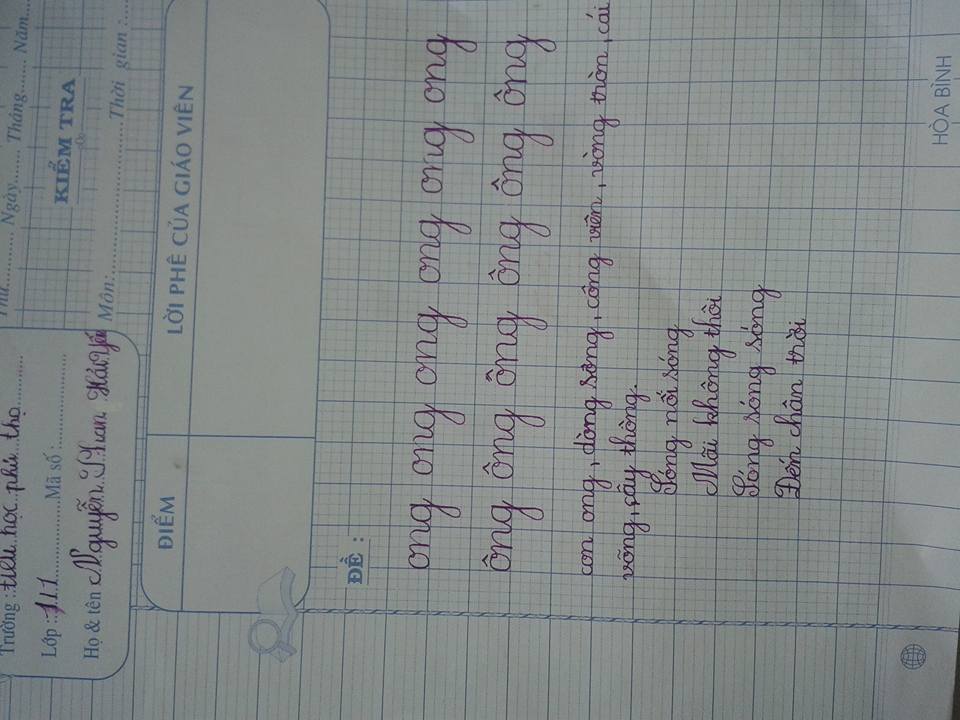 Thứ......... Ngày......... Tháng......... Năm.........
KIỂM TRA
Môn:......... Thời gian :.........
Trường : tiểu học phú thọ
Lớp : 1.1 Mã số :
Họ & tên Nguyễn Phan Hải Yế
ĐIỂM
LỜI PHÊ CỦA GIÁO VIÊN
ĐỀ :
ong ong ong ong ong ong ong
ông ông ông ông ông ông ông
con ong, dòng sông, công viên, vòng tròn, cái
võng, cây thông.
Sóng nối sóng
Mãi không thôi
Sóng sóng sóng
Đến chân trời
HÒA BÌNH